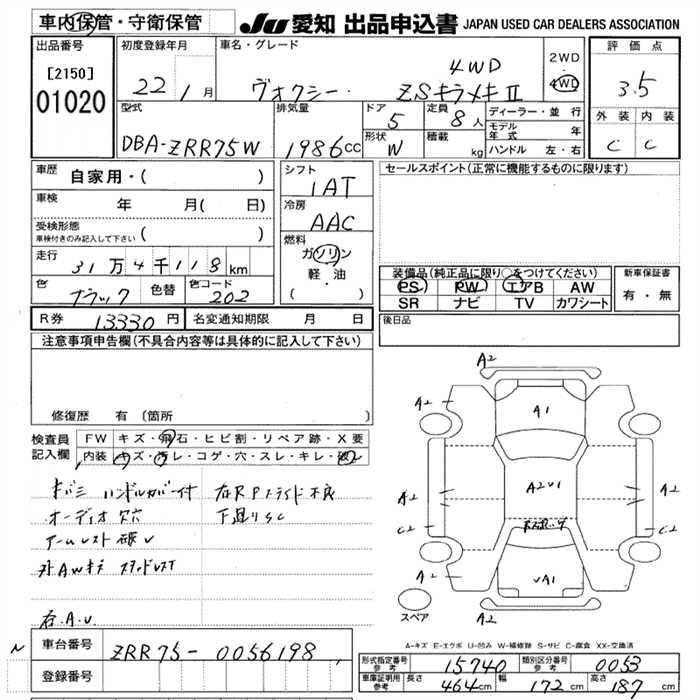 車内保管・守衛保管
JU 愛知 出品申込書 JAPAN USED CAR DEALERS ASSOCIATION
出品番号
[2150]
01020
初度登録年月
22 年 1月
車名・グレード
4WD
ヴォクシー・ ZSキラメキⅡ
2WD
4WD
評価点
3.5
外装 内装
C C
型式
DBA-ZRR75W
排気量
1986cc
ドア
5
形状
W
定員
8人
積載
kg
ディーラー・並行
モデル年式 年
ハンドル 左・右
車歴
自家用・( )
車検
年 月( 日)
受検形態
車検付きのみ記入して下さい ( )
走行
31万4千118km
色
ブラック
色替
色コード
202
シフト
1AT
冷房
AAC
燃料
ガソリン
軽・油
( ・ )
セールスポイント(正常に機能するものに限ります)
装備品(純正品に限り○をつけてください)
PS PW エアB AW
SR ナビ TV カワシート
新車保証書
有・無
R券 13330円 名変通知期限 月 日
後日品
注意事項申告欄(不具合内容等は具体的に記入して下さい)
修復歴 有〔箇所 〕
検査員
記入欄
FW キズ・飛石・ヒビ割・リペア跡・X要
内装 キズ・汚レ・コゲ・穴・スレ・キレ・破レ
キバミ ハンドルカバー付 右RPスライド不良
オーディオ欠穴 下廻りSC
アームレスト破レ
外AWキズ
右A.U
A2
A1
A2
A2
A2
A2U1
A2
C2
C2
UA1
A2
A2
A2
スペア
A-キズ E-エクボ U-凹み W-補修跡 S-サビ C-腐食 XX-交換済
N 車台番号 ZRR75-0056198
登録番号
形式指定番号 参考 15740 類別区分番号 参考 0053
車庫証明用 参考 長さ 464cm 幅 172cm 高さ 187cm